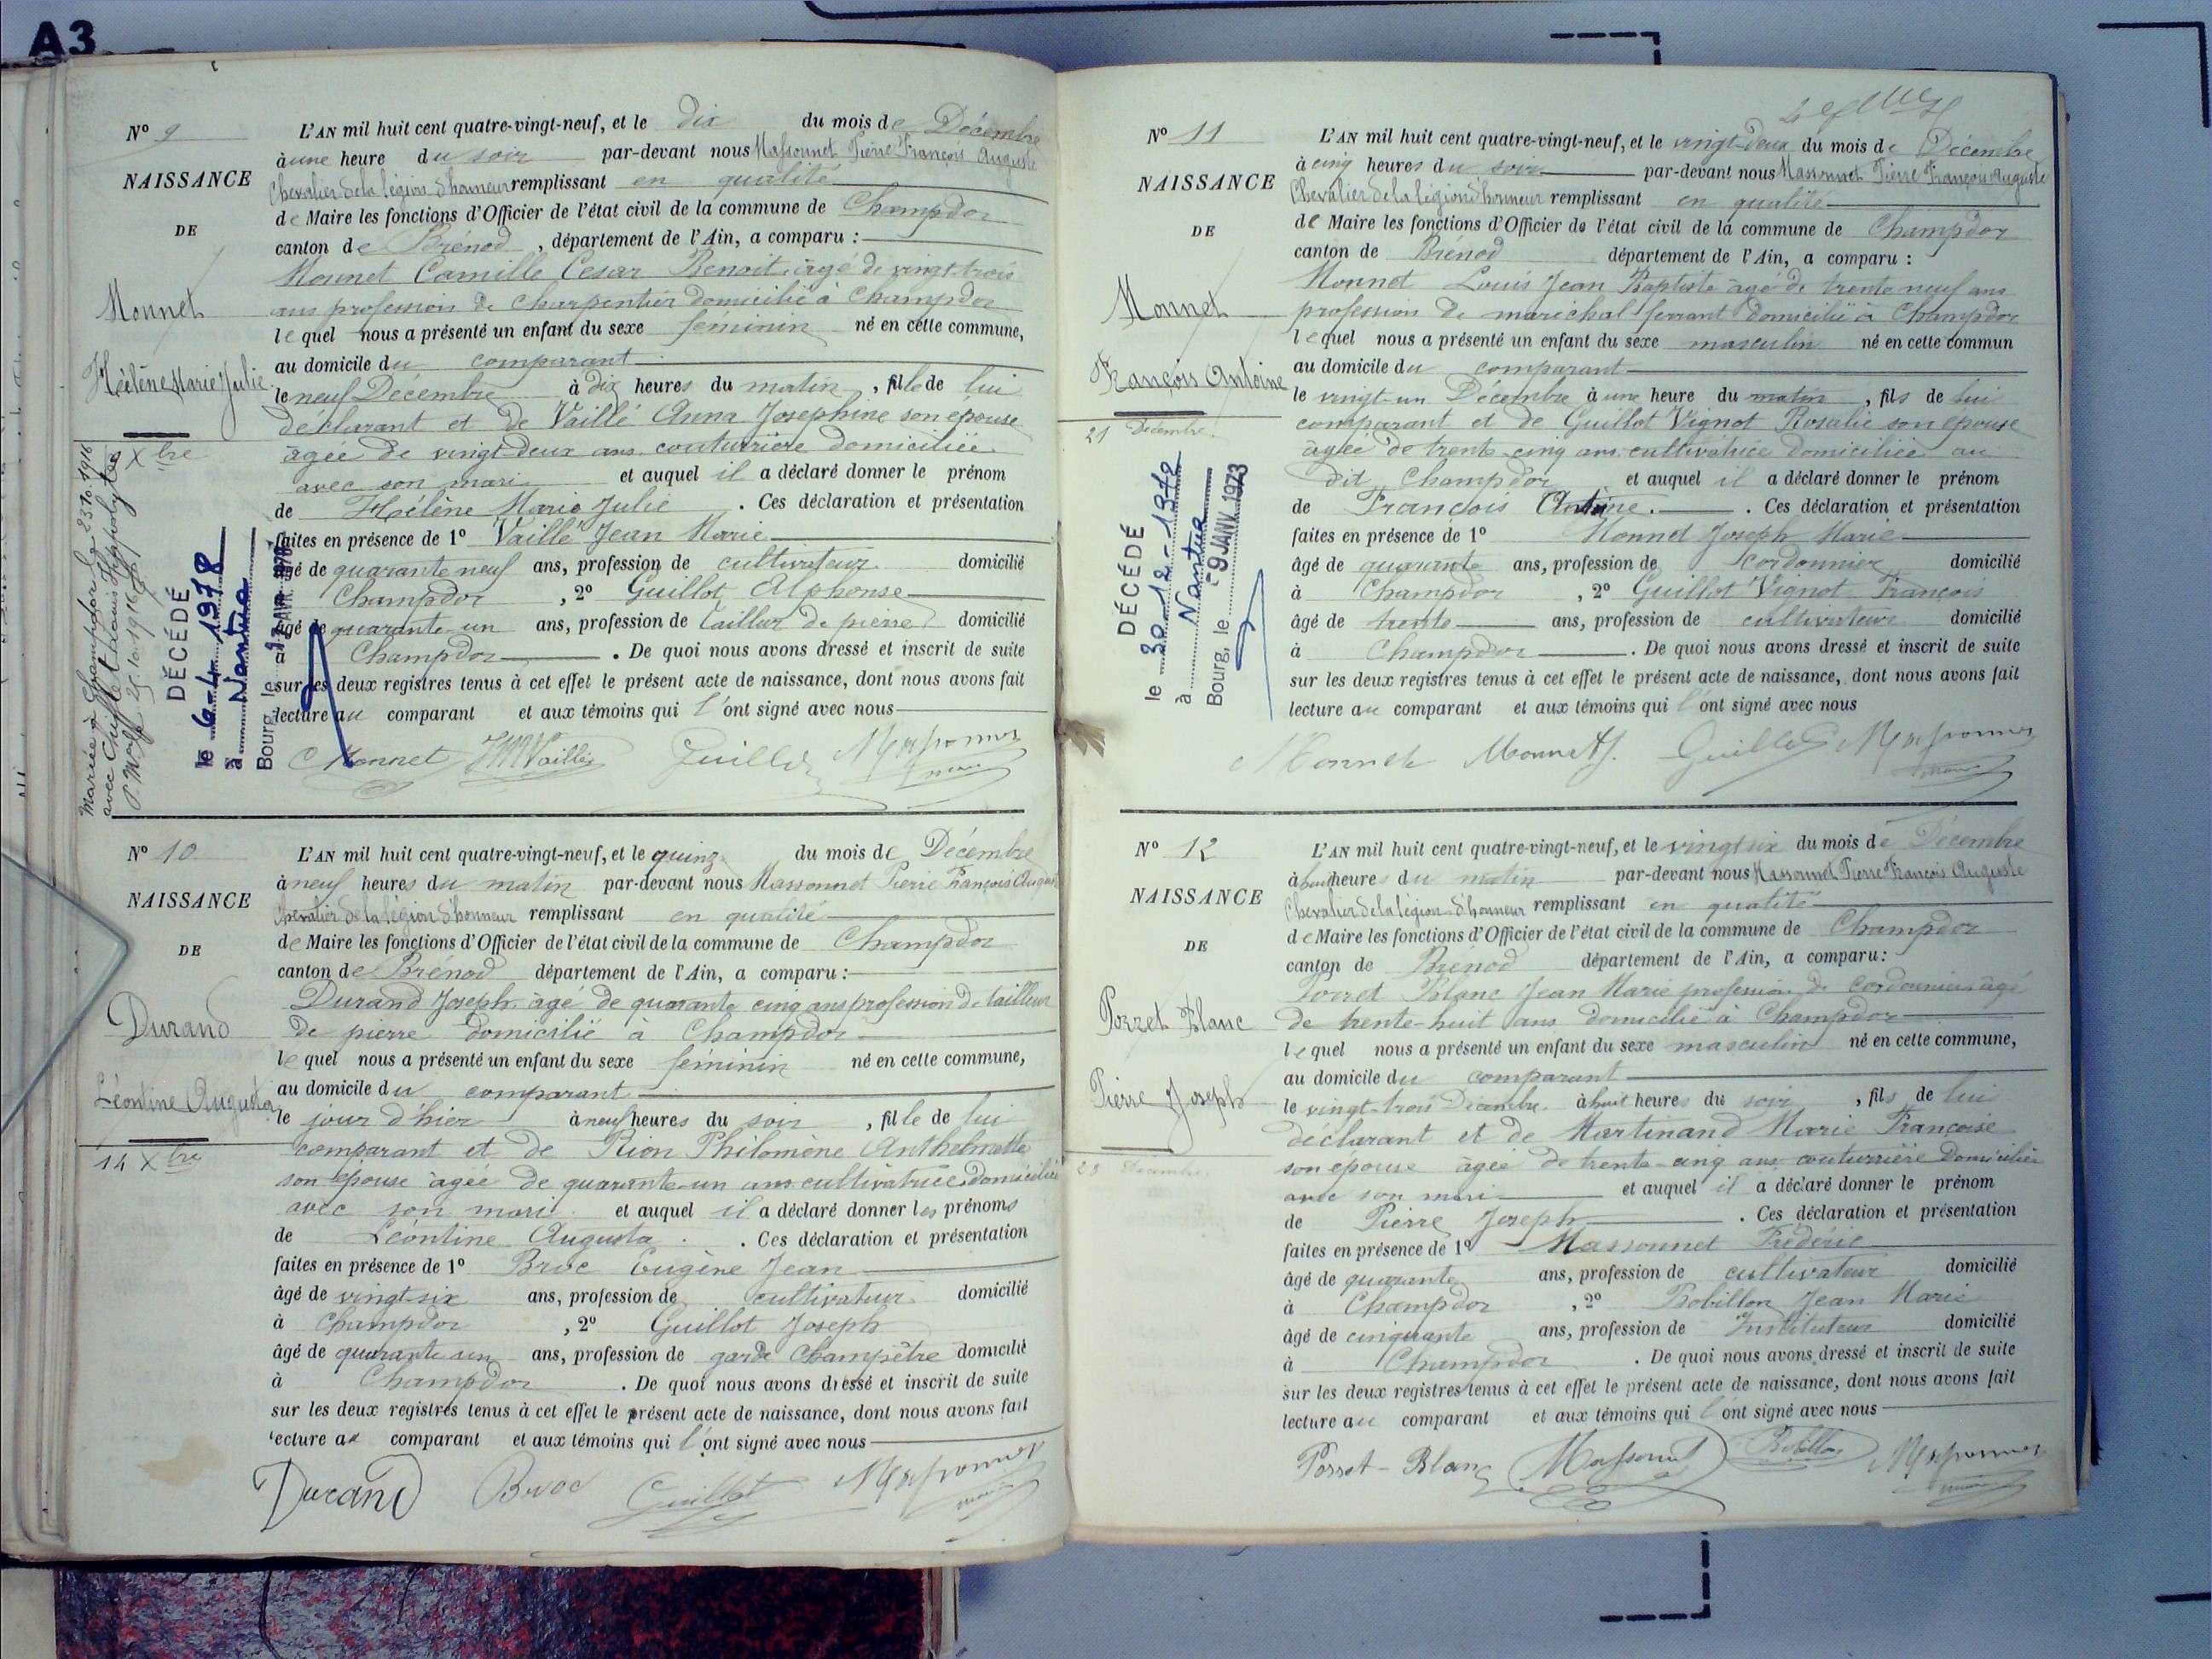 A3
N° 9
NAISSANCE
DE
Monnet
Hélène Marie Julie
Xbre
Mariée à Champdor le 23.10.1916
avec Chifflet Louis Hippolyte
DÉCÉDÉ
le 6-4-1978
à Nantua
Bourg, le
L'AN mil huit cent quatre-vingt-neuf, et le dix du mois de Décembre
à une heure du soir par-devant nous Massonnet Pierre François Auguste
Chevalier de la légion d'honneur remplissant en qualité
de Maire les fonctions d'Officier de l'état civil de la commune de Champdor
canton de Brénod, département de l'Ain, a comparu :
Monnet Camille Cesar Benoit âgé de vingt trois
ans profession de Charpentier domicilié à Champdor
lequel nous a présenté un enfant du sexe féminin né en cette commune,
au domicile du comparant
le neuf Décembre à dix heures du matin, fille de lui
déclarant et de Vaillé Anna Josephine son épouse
agée de vingt-deux ans couturrière domiciliée
avec son mari et auquel il a déclaré donner le prénom
de Hélène Marie Julie. Ces déclaration et présentation
faites en présence de 1° Vaillé Jean Marie
âgé de quarante neuf ans, profession de cultivateur domicilié
à Champdor, 2° Guillot Alphonse
âgé de quarante-un ans, profession de tailleur de pierre domicilié
à Champdor. De quoi nous avons dressé et inscrit de suite
sur les deux registres tenus à cet effet le présent acte de naissance, dont nous avons fait
lecture au comparant et aux témoins qui l'ont signé avec nous
C Monnet JM Vaillé Guillot Massonnet
maire
N° 10
NAISSANCE
DE
Durand
Léontine Augusta
14 Xbre
L'AN mil huit cent quatre-vingt-neuf, et le quinz du mois de Décembre
à neuf heures du matin par-devant nous Massonnet Pierre François Auguste
Chevalier de la légion d'honneur remplissant en qualité
de Maire les fonctions d'Officier de l'état civil de la commune de Champdor
canton de Brénod département de l'Ain, a comparu :
Durand Joseph âgé de quarante cinq ans profession de tailleur
de pierre domicilié à Champdor
lequel nous a présenté un enfant du sexe féminin né en cette commune,
au domicile du comparant
le jour d'hier à neuf heures du soir, fille de lui
comparant et de Rion Philomène Anthelmette
son épouse âgée de quarante-un ans cultivatrice domiciliée
avec son mari et auquel il a déclaré donner les prénoms
de Léontine Augusta. Ces déclaration et présentation
faites en présence de 1° Broc Eugène Jean
âgé de vingt-six ans, profession de cultivateur domicilié
à Champdor, 2° Guillot Joseph
âgé de quarante un ans, profession de garde Champêtre domicilié
à Champdor. De quoi nous avons dressé et inscrit de suite
sur les deux registres tenus à cet effet le présent acte de naissance, dont nous avons fait
lecture au comparant et aux témoins qui l'ont signé avec nous
Durand Broc Guillot Massonnet
maire
N° 11
NAISSANCE
DE
Monnet
François Antoine
21 Décembre
DÉCÉDÉ
le 30-12-1972
à Nantua
Bourg, le - 9 JANV. 1973
L'AN mil huit cent quatre-vingt-neuf, et le vingt-deux du mois de Décembre
à cinq heures du soir par-devant nous Massonnet Pierre François Auguste
Chevalier de la légion d'honneur remplissant en qualité
de Maire les fonctions d'Officier de l'état civil de la commune de Champdor
canton de Brénod département de l'Ain, a comparu :
Monnet Louis Jean Baptiste âgé de trente neuf ans
profession de maréchal ferrant domicilié à Champdor
lequel nous a présenté un enfant du sexe masculin né en cette commun
au domicile du comparant
le vingt-un Décembre à une heure du matin, fils de lui
comparant et de Guillot Vignot Rosalie son épouse
âgée de trente-cinq ans cultivatrice domiciliée au
dit Champdor et auquel il a déclaré donner le prénom
de François Antoine. Ces déclaration et présentation
faites en présence de 1° Monnet Joseph Marie
âgé de quarante ans, profession de Cordonnier domicilié
à Champdor, 2° Guillot Vignot François
âgé de trente ans, profession de cultivateur domicilié
à Champdor. De quoi nous avons dressé et inscrit de suite
sur les deux registres tenus à cet effet le présent acte de naissance, dont nous avons fait
lecture au comparant et aux témoins qui l'ont signé avec nous
Monnet Monnet J. Guillot Massonnet
maire
N° 12
NAISSANCE
DE
Porret Blanc
Pierre Joseph
23 Décembre
L'AN mil huit cent quatre-vingt-neuf, et le vingt six du mois de Décembre
à huit heures du matin par-devant nous Massonnet Pierre François Auguste
Chevalier de la légion-d'honneur remplissant en qualité
de Maire les fonctions d'Officier de l'état civil de la commune de Champdor
canton de Brénod département de l'Ain, a comparu :
Porret Blanc Jean Marie profession de Cordonnier âgé
de trente-huit ans domicilié à Champdor
lequel nous a présenté un enfant du sexe masculin né en cette commune,
au domicile du comparant
le vingt-trois Décembre à huit heures du soir, fils de lui
déclarant et de Martinand Marie Françoise
son épouse âgée de trente-cinq ans couturrière domiciliée
avec son mari et auquel il a déclaré donner le prénom
de Pierre Joseph. Ces déclaration et présentation
faites en présence de 1° Massonnet Frédéric
âgé de quarante ans, profession de cultivateur domicilié
à Champdor, 2° Robillon Jean Marie
âgé de cinquante ans, profession de Instituteur domicilié
à Champdor. De quoi nous avons dressé et inscrit de suite
sur les deux registres tenus à cet effet le présent acte de naissance, dont nous avons fait
lecture au comparant et aux témoins qui l'ont signé avec nous
Porret-Blanc Massonnet Robillon Massonnet
maire